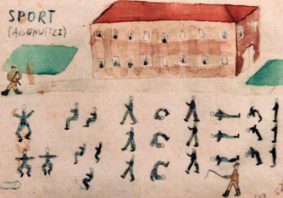 SPORT
(AUSCHWITZ)